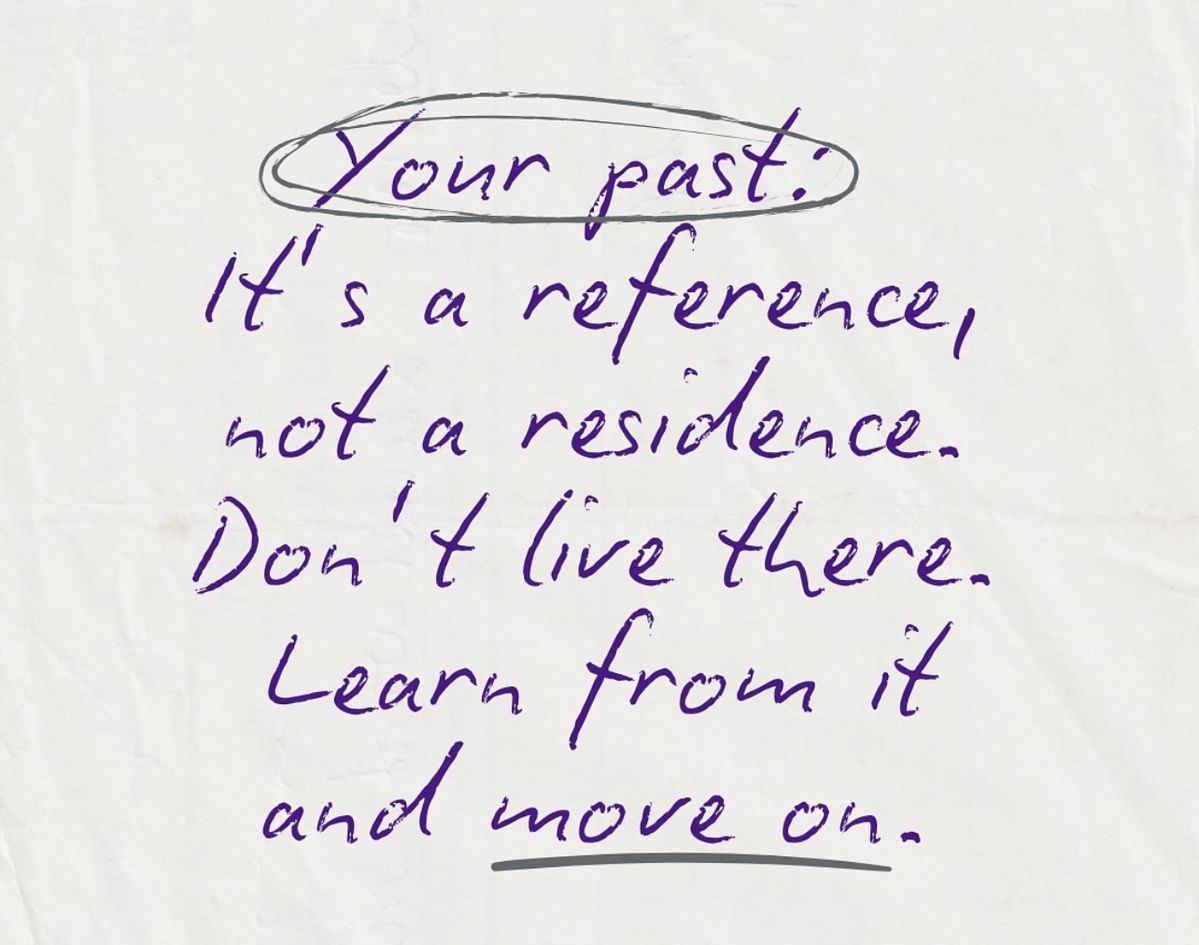 Your past:
It's a reference,
not a residence.
Don't live there.
Learn from it
and move on.